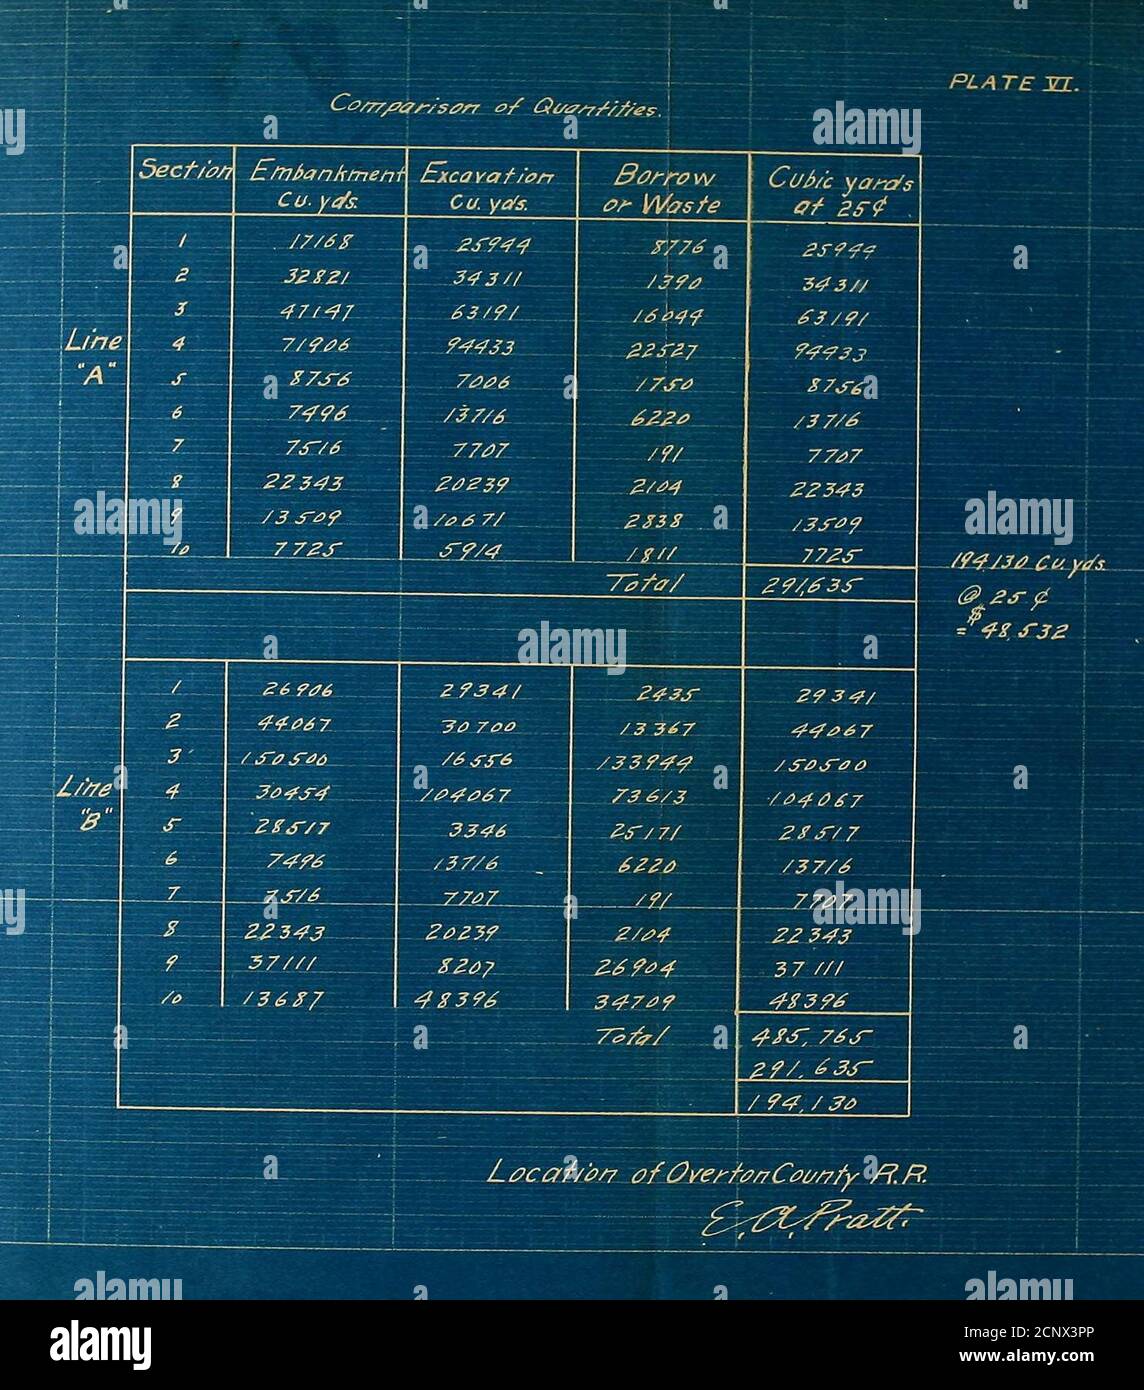 PLATE VI.
Comparison of Quantities.
Section Embankment Cu. yds. Excavation Cu. yds. Borrow or Waste Cubic yards at 25¢
Line "A"
1 17168 25944 8776 25944
2 32821 34311 1390 34311
3 47147 63191 16044 63191
4 71906 94433 22527 94433
5 8756 7006 1750 8756
6 7496 13716 6220 13716
7 7516 7707 191 7707
8 22343 20239 2104 22343
9 13509 10671 2838 13509
10 7725 5914 1811 7725
Total 291,635
194,130 Cu. yds.
@ 25 ¢
= $48,532
Line "B"
1 26906 29341 2435 29341
2 44067 30700 13367 44067
3 150500 16556 133944 150500
4 30454 104067 73613 104067
5 28517 3346 25171 28517
6 7496 13716 6220 13716
7 7516 7707 191 7707
8 22343 20239 2104 22343
9 37111 8207 26904 37111
10 13687 48396 34709 48396
Total 485,765
291,635
194,130
Location of Overton County R.R.
E. A. Pratt.
alamy
Image ID: 2CNX3PP
www.alamy.com